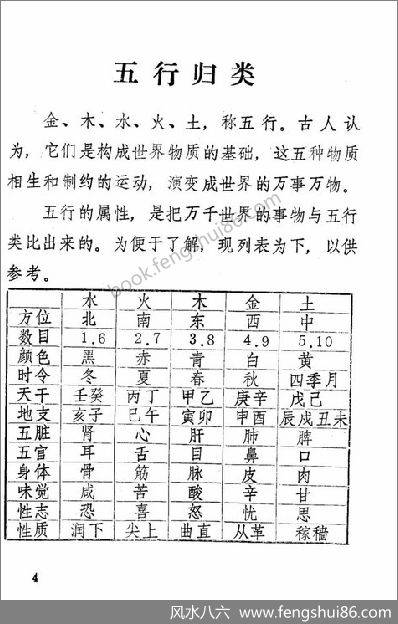 五行归类
金、木、水、火、土，称五行。古人认
为，它们是构成世界物质的基础，这五种物质
相生和制约的运动，演变成世界的万事万物。
五行的属性，是把万千世界的事物与五行
类比出来的。为便于了解，现列表为下，以供
参考。
水 火 木 金 土
方位 北 南 东 西 中
数目 1.6 2.7 3.8 4.9 5.10
颜色 黑 赤 青 白 黄
时令 冬 夏 春 秋 四季月
天干 壬癸 丙丁 甲乙 庚辛 戊己
地支 亥子 巳午 寅卯 申酉 辰戌丑未
五脏 肾 心 肝 肺 脾
五官 耳 舌 目 鼻 口
身体 骨 筋 脉 皮 肉
味觉 咸 苦 酸 辛 甘
性志 恐 喜 怒 忧 思
性质 润下 尖上 曲直 从革 稼穑
4
book.fengshui86.com
风水八六 | www.fengshui86.com